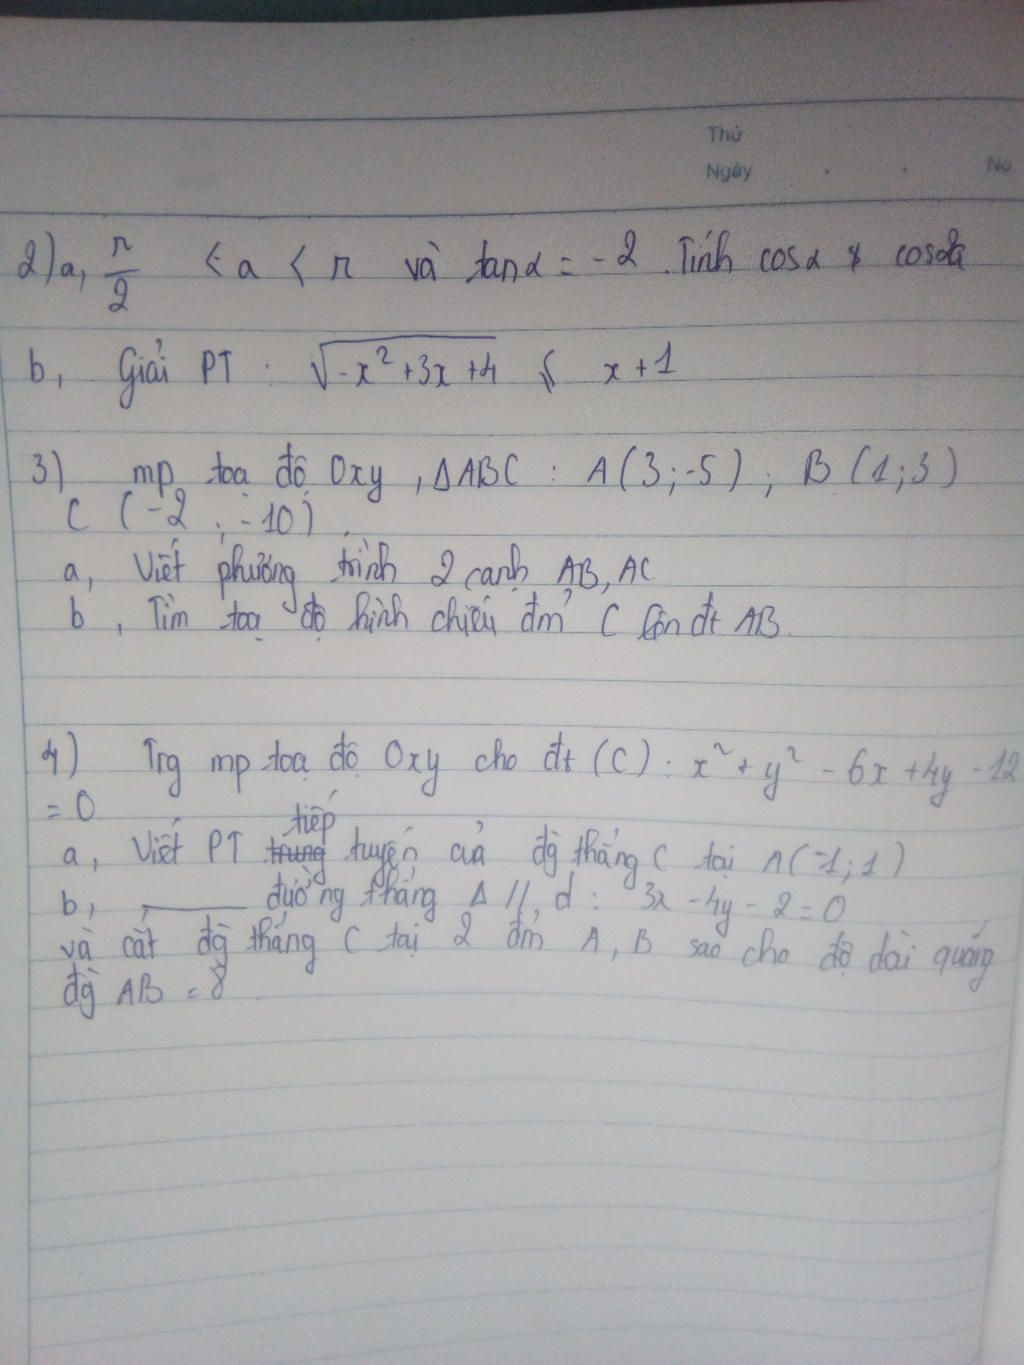 Thứ
Ngày No.
2) a, π/2 < a < π và tanα = -2. Tính cosα & cos2α
b, Giải PT : √(-x² + 3x + 4) ≤ x + 1
3) mp toạ độ Oxy, ΔABC : A(3;-5) ; B(1;3)
C (-2 ; -10).
a, Viết phương trình 2 cạnh AB, AC
b, Tìm toạ độ hình chiếu đm C lên đt AB.
4) Trg mp toạ độ Oxy cho đt (C) : x² + y² - 6x + 4y - 12
= 0
a, Viết PT trung tiếp tuyến của đg thẳng C tại A(-1;1)
b, ——— đường thẳng Δ //, d : 3x - 4y - 2 = 0
và cắt đg thẳng C tại 2 đm A, B sao cho độ dài quảng
đg AB = 8.